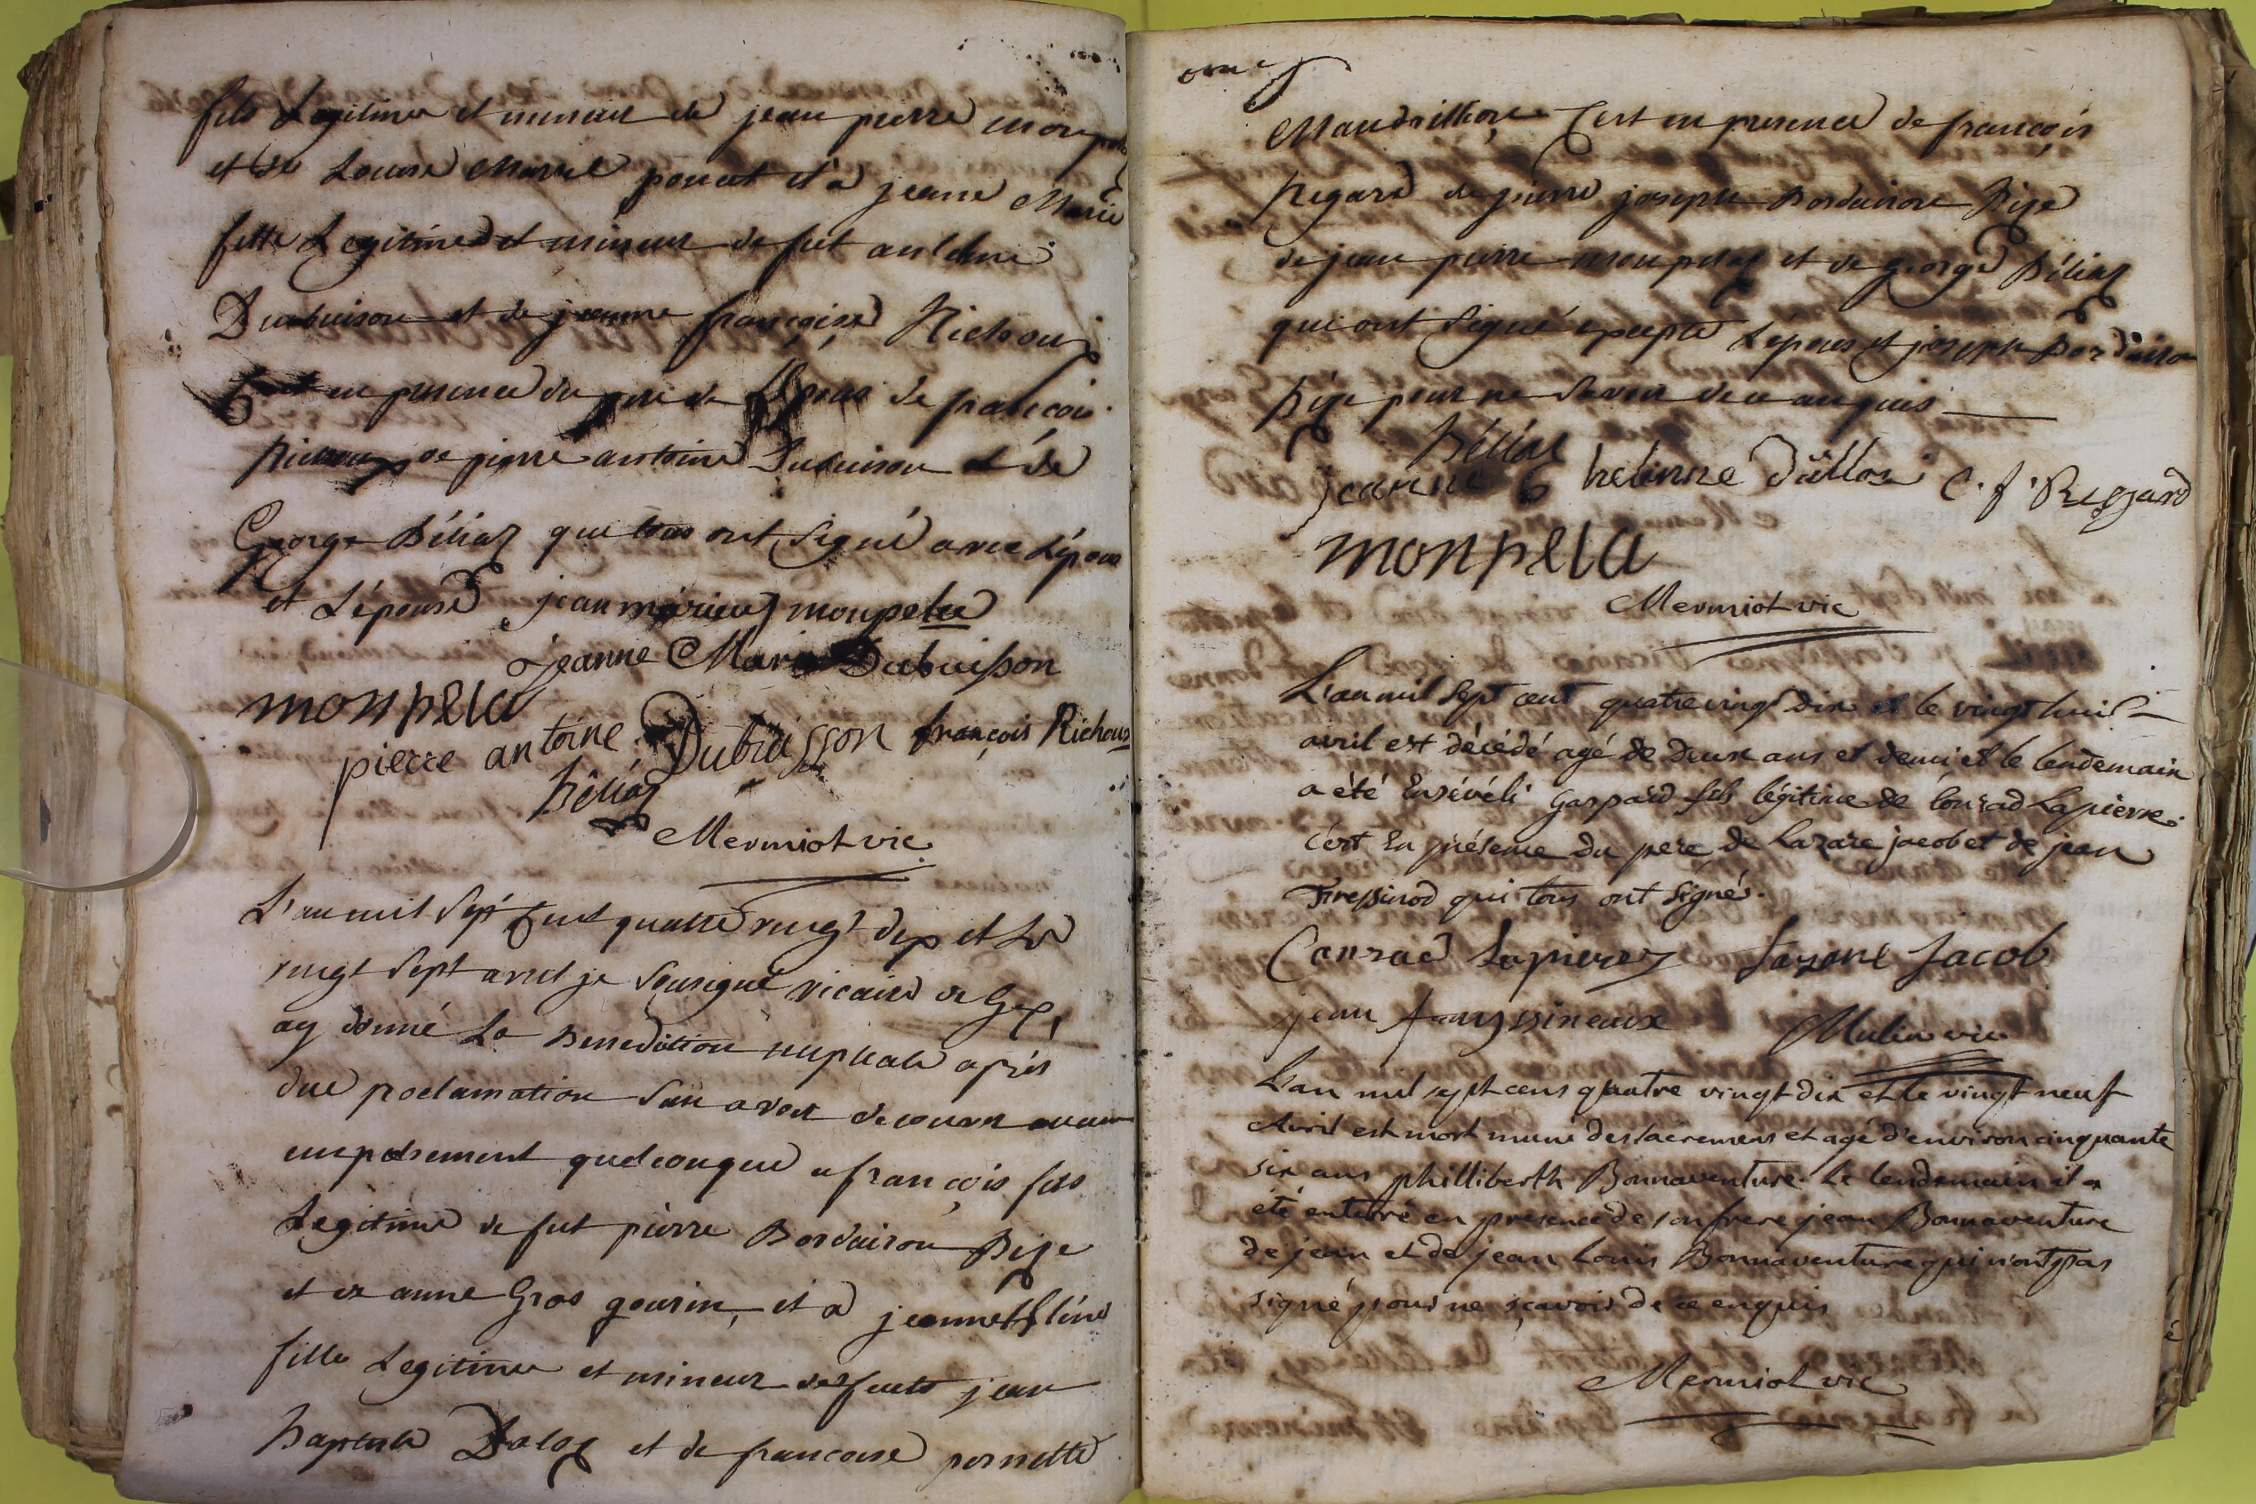 fils Legitime et mineur de jean pierre monpela
et de Louise Marie poncet et a jeanne Marie
fille Legitime et mineur de fut antoine
Dubuison et de jeanne françoise Richoux
C'est en presence du pere de l'epoux de françois
Richoux de pierre antoine Dubuison et de
George Béliaz qui tous ont signé avec L'époux
et L'épouse jean marieu monpela
jeanne Marie Dubuisson
monpela
pierre antoine Dubuisson françois Richoux
béliaz
Mermiot vic
L'an mil sept cent quatre vingt dix et Le
vingt sept avril je sousigné vicaire de Gex,
ay donné La Benediction nuptiale après
due proclamation san avoir decouvert aucun
empechement quelconque a françois fils
Legitime de fut pierre Bordairon Bize
et de anne Gros gourin, et a jeanne héléne
fille Legitime et mineur des futs jean
baptiste Daloz et de francoise pernette
Maudrillion C'est en presence de françois
Regard de pierre joseph Bordairon Bize
de jean pierre monpelaz et de george Béliaz
qui ont signé excepté L'epoux et joseph Bordairon
Bize pour ne savoir de ce enquis
béliaz
jeanne helenne dálloz C. f. Regard
monpela
Mermiot vic
L'an mil sept cent quatre vingt dix et le vingt huit
avril est décédé agé de Deux ans et demi et le lendemain
a été Ensévéli Gaspard fils légitime de Conrad Lapierre.
c'est En présence du pere de Lazare jacob et de jean
Fressinod qui tous ont signés.
Conrad Lapierre Lazare Jacob
jean frayssineaux Mulin vic
L'an mil sept cens quatre vingt dix et le vingt neuf
Avril est mort muni des sacremens et agé d'environ cinquante
six ans philliberth Bonnaventure. Le lendemain il a
été enterré en presence de son frere jean Bonnaventure
de jean et de jean Louis Bonnaventure qui n'ont pas
signé pour ne sçavoir de ce enquis
Mermiot vic